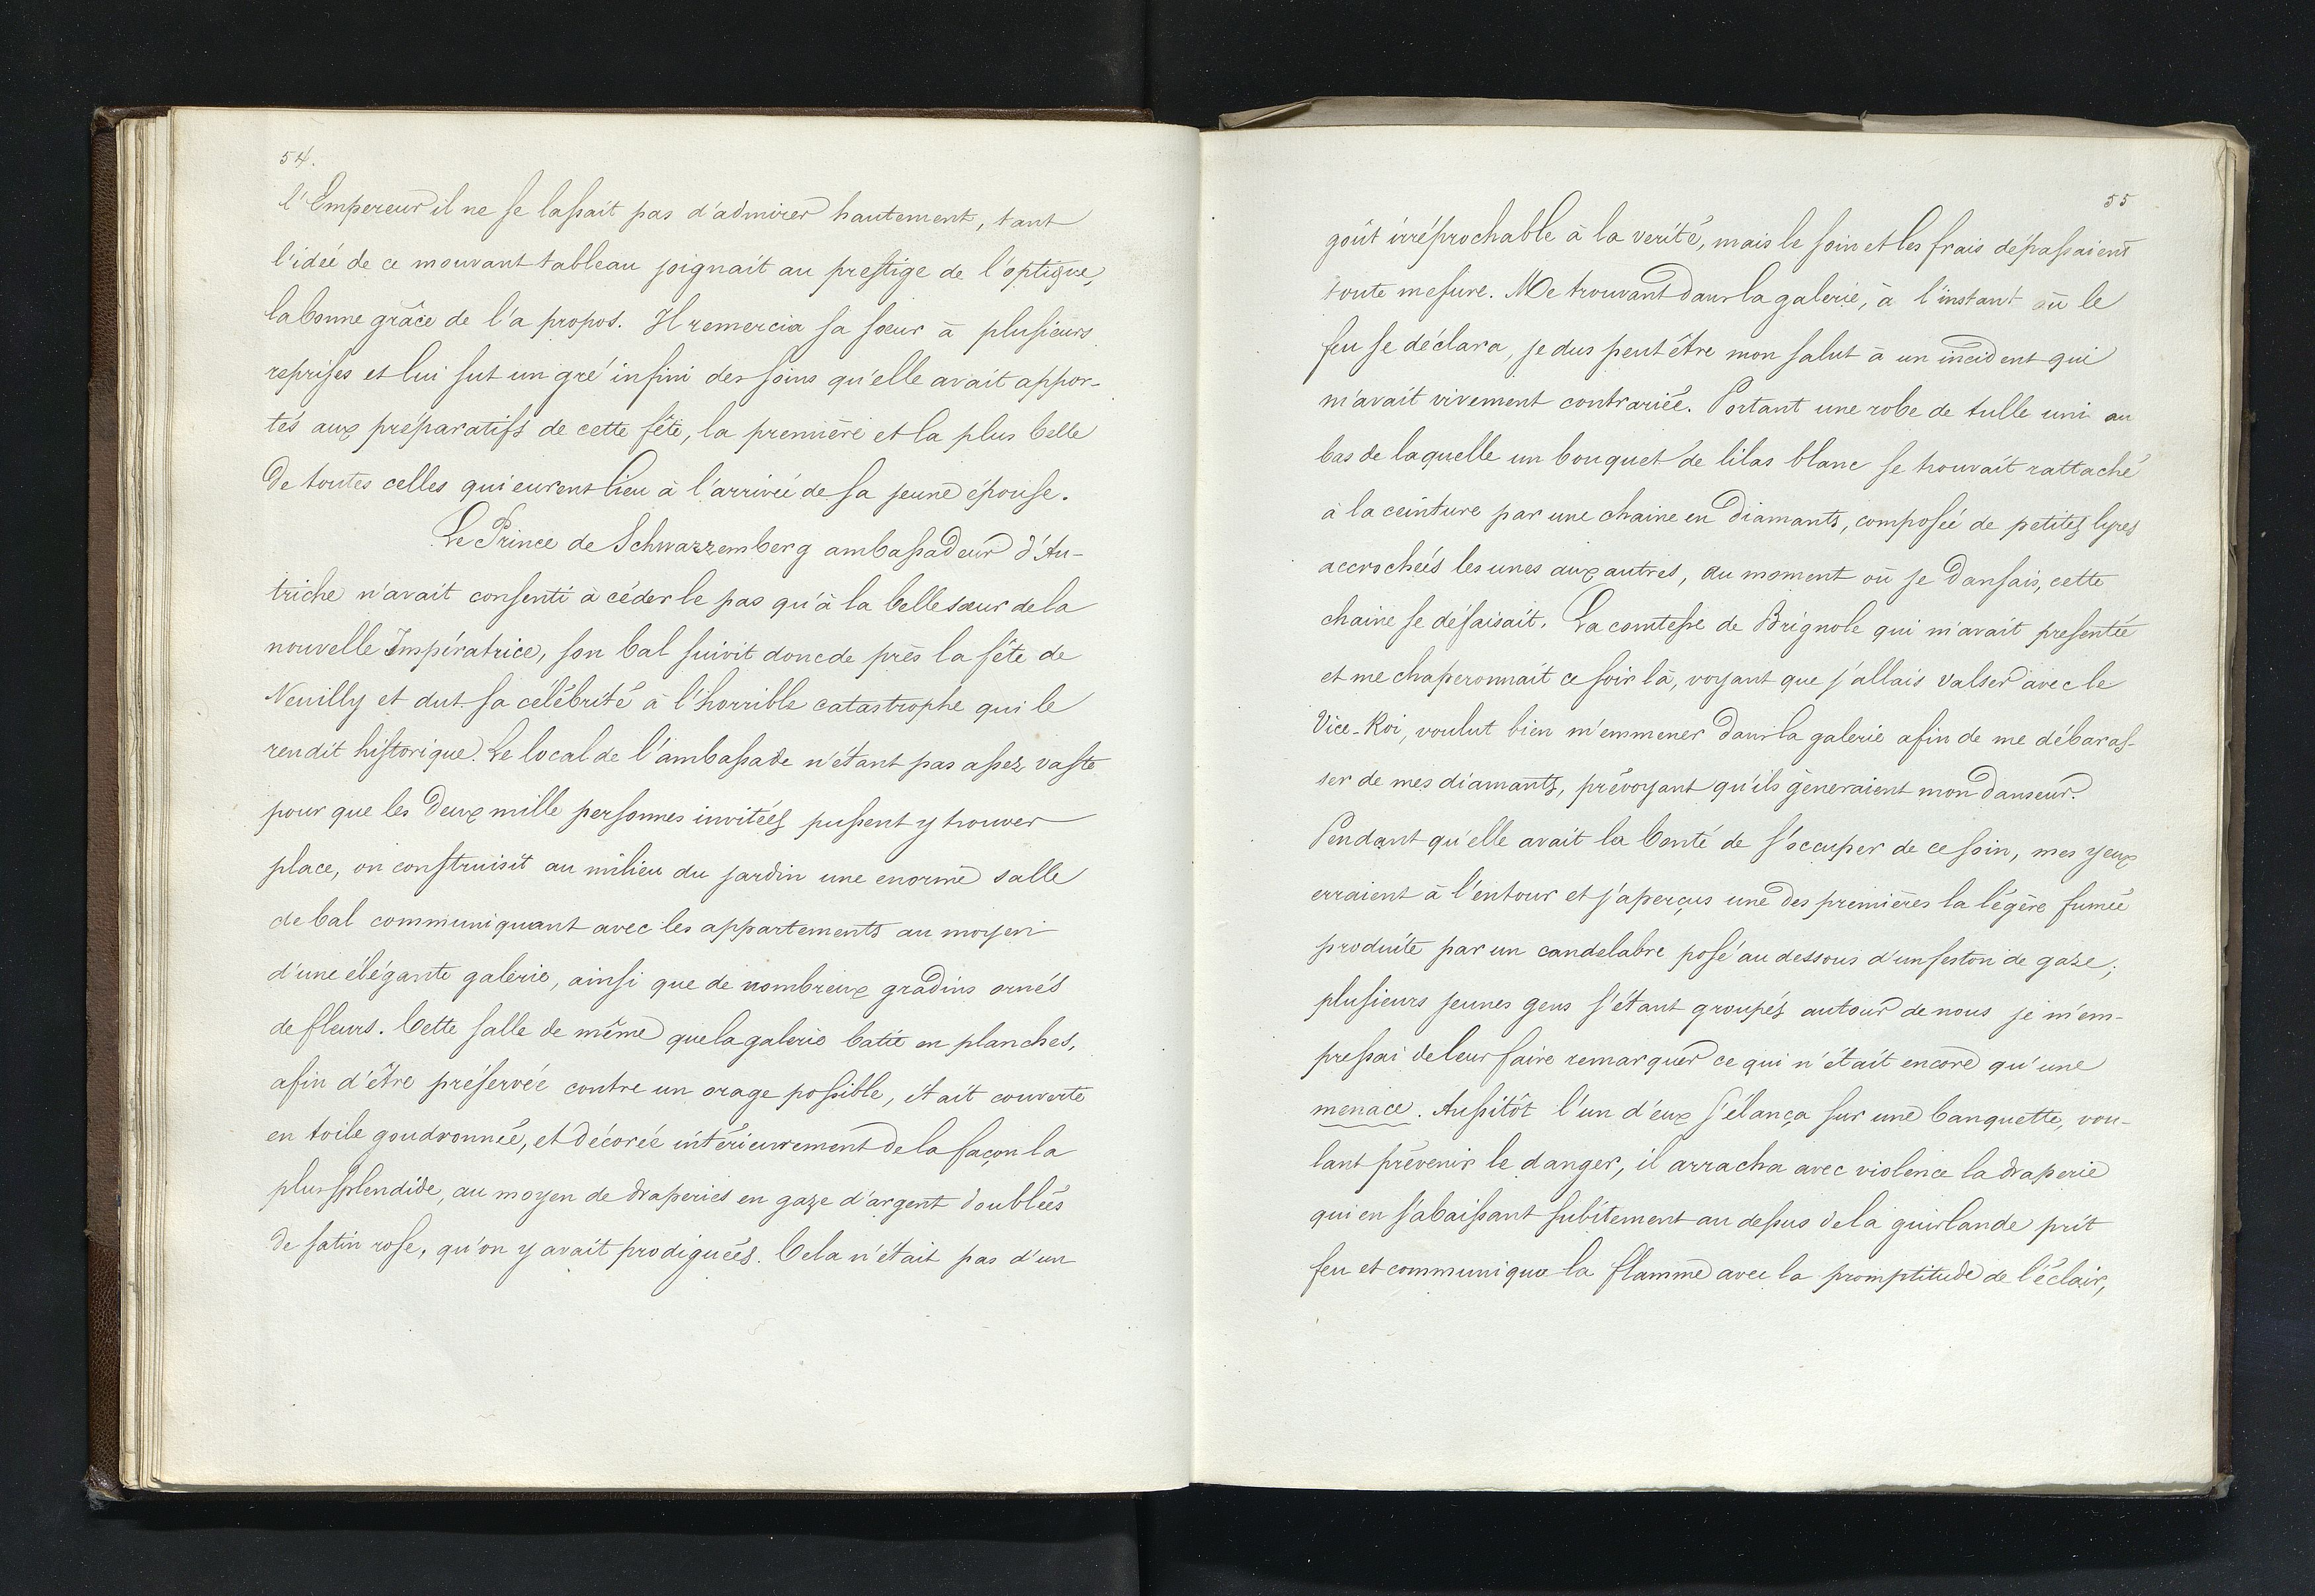 54.
l'Empereur il ne se lassait pas d'admirer hautement, tant
l'idée de ce mouvant tableau joignait au prestige de l'optique,
la bonne grâce de l'a propos. Il remercia sa sœur à plusieurs
reprises et lui sut un gré infini des soins qu'elle avait appor-
tés aux préparatifs de cette fête, la première et la plus belle
de toutes celles qui eurent lieu à l'arrivée de sa jeune épouse.
Le Prince de Schwarzemberg ambassadeur d'Au-
triche n'avait consenti à céder le pas qu'à la belle sœur de la
nouvelle Impératrice, son bal suivit donc de près la fête de
Neuilly et dut sa célébrité à l'horrible catastrophe qui le
rendit historique. Le local de l'ambassade n'étant pas assez vaste
pour que les deux mille personnes invitées pussent y trouver
place, on construisit au milieu du jardin une enorme salle
de bal communiquant avec les appartements au moyen
d'une élégante galerie, ainsi que de nombreux gradins ornés
de fleurs. Cette salle de même que la galerie batie en planches,
afin d'être préservée contre un orage possible, était couverte
en toile goudronnée, et décorée intérieurement de la façon la
plus splendide, au moyen de draperies en gaze d'argent doublées
de satin rose, qu'on y avait prodiguées. Cela n'était pas d'un
55
goût irréprochable à la verité, mais le soin et les frais dépassaient
toute mesure. Me trouvant dans la galerie, à l'instant où le
feu se déclara, je dus peut être mon salut à un incident qui
m'avait vivement contrariée. Portant une robe de tulle uni au
bas de laquelle un bouquet de lilas blanc se trouvait rattaché
à la ceinture par une chaine en diamants, composée de petites lyres
accrochées les unes aux autres, au moment où je dansais, cette
chaine se défaisait. La comtesse de Brignole qui m'avait presentée
et me chaperonnait ce soir là, voyant que j'allais valser avec le
Vice-Roi, voulut bien m'emmener dans la galerie afin de me débaras-
ser de mes diamants, prévoyant qu'ils gêneraient mon danseur.
Pendant qu'elle avait la bonté de s'occuper de ce soin, mes yeux
erraient à l'entour et j'aperçus une des premières la légère fumée
produite par un candelabre posé au dessous d'un feston de gaze;
plusieurs jeunes gens s'étant groupés autour de nous je m'em-
pressai de leur faire remarquer ce qui n'était encore qu'une
menace. Aussitôt l'un d'eux s'élança sur une banquette, vou-
lant prévenir le danger, il arracha avec violence la draperie
qui en s'abaissant subitement au dessus de la guirlande prit
feu et communiqua la flamme avec la promptitude de l'éclair,